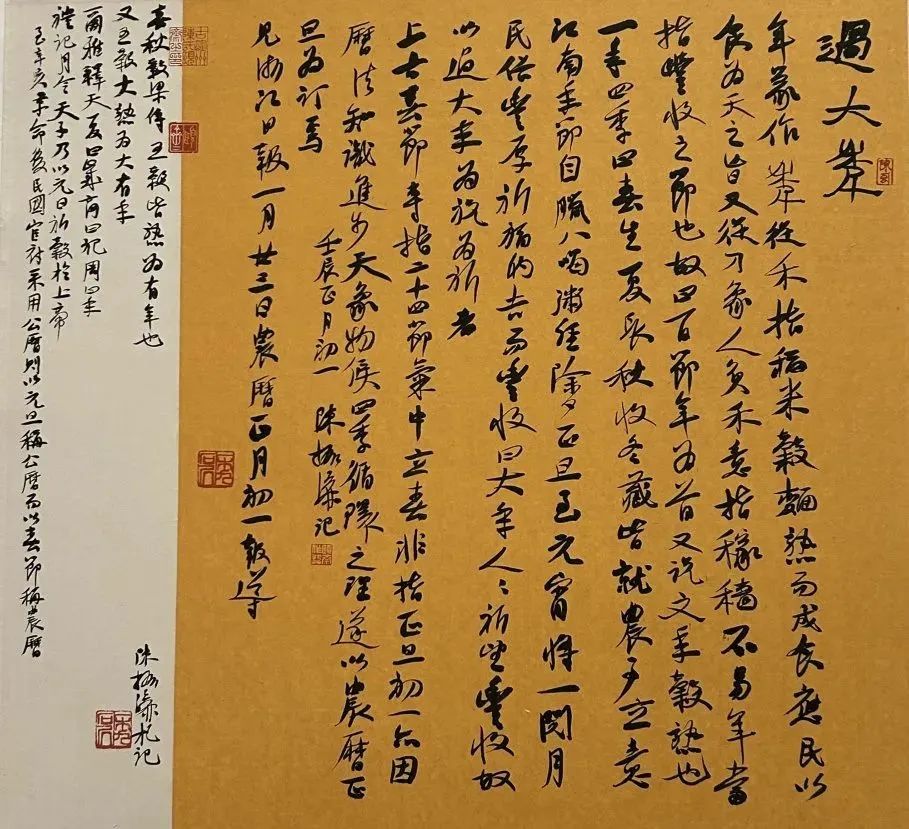 過大年
年篆作秊從禾指稻米穀麵熟而成食應民以
食為天之旨又從刀象人負禾意指稼穡不易年當
指豐收之節也故曰百節年為首又說文年穀熟也
一年四季曰春生夏長秋收冬藏皆就農事立意
江南年節自臘八喝粥經除夕正旦至元宵將一閱月
民俗豐厚祈福納吉而豐收曰大年人人祈望豐收故
以過大年為祝為祈者
上古春節專指二十四節氣中立春非指正旦初一亦因
曆法知識進步天象物候四季循環之理遂以農曆正
旦為訂焉
壬辰正月初一 陳振濂記
見浙江日報一月廿三日農曆正月初一報導
春秋穀梁傳五穀皆熟為有年也
又五穀大熟為大有年
爾雅釋天夏曰歲商曰祀周曰年
禮記月令天子乃以元日祈穀於上帝
辛亥革命後民國官府采用公曆則以元旦稱公曆而以春節稱農曆
陳振濂札記